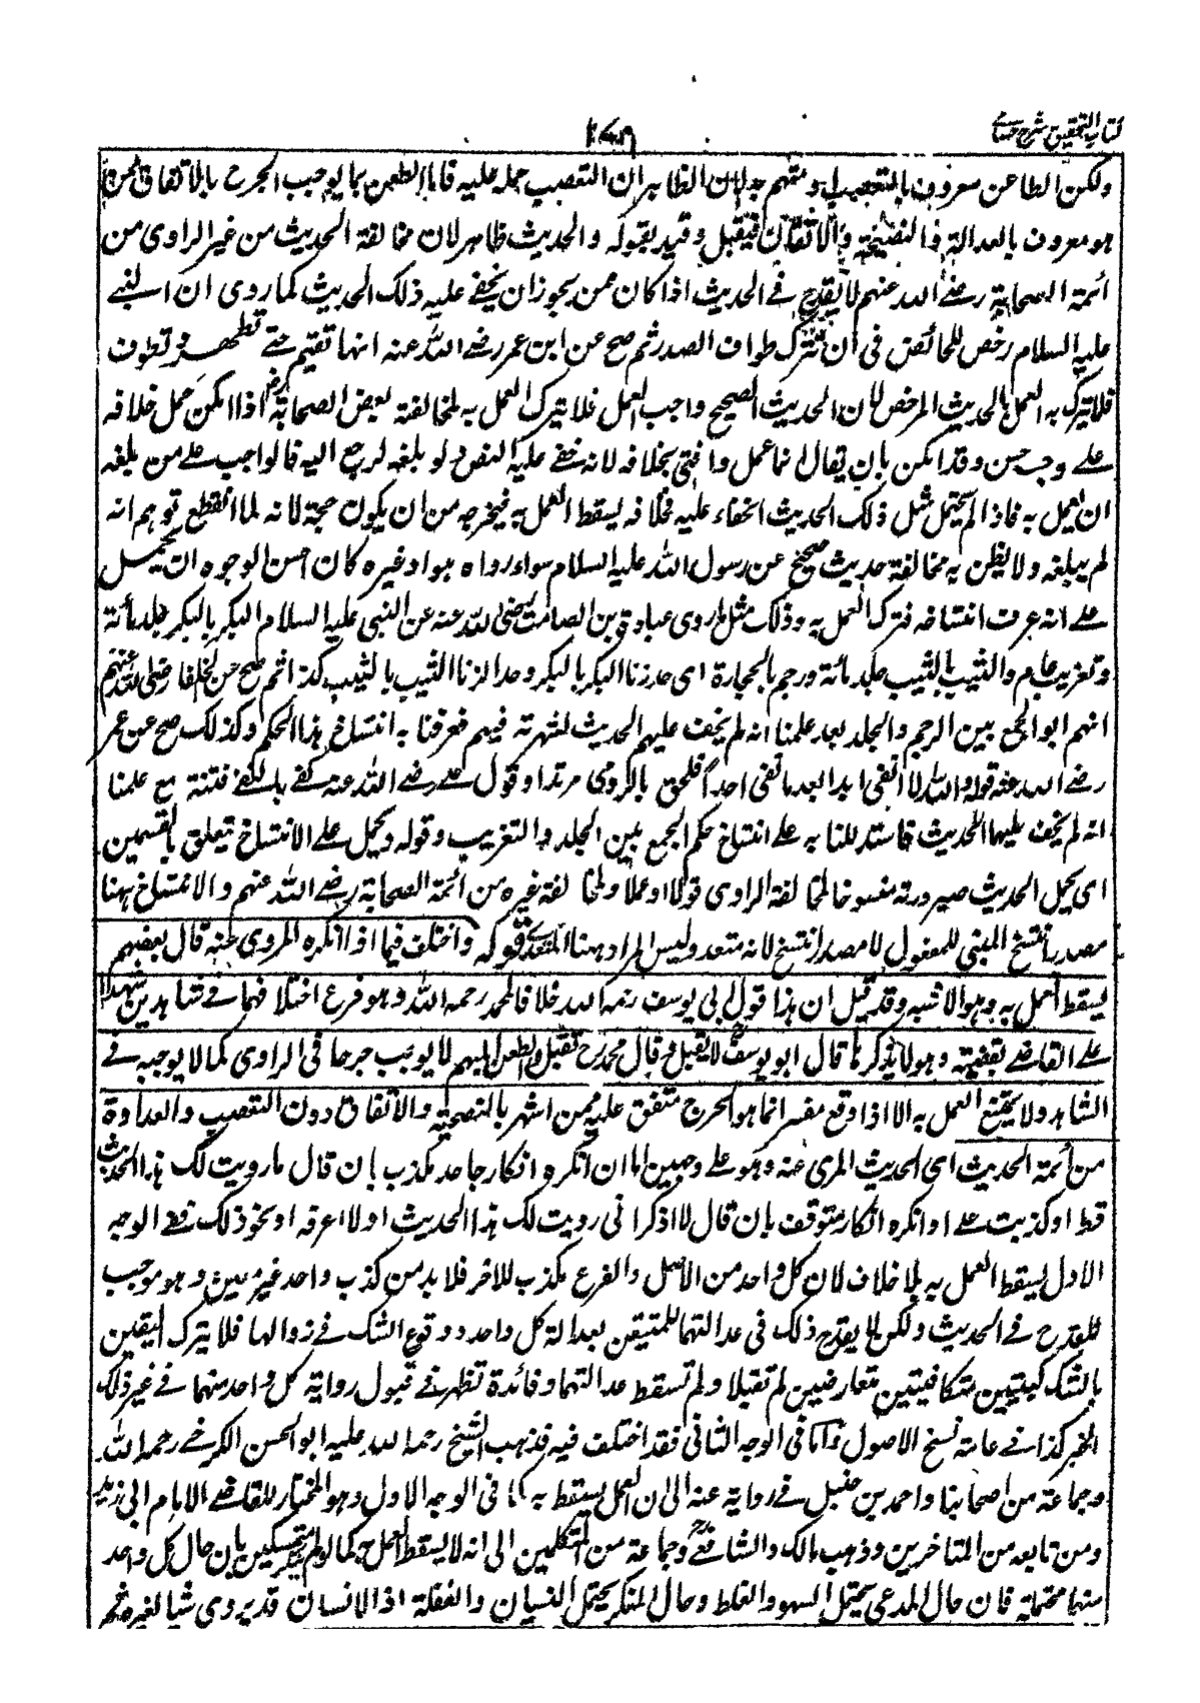 كتاب التحقيق شرح حسامي
١٤٦
ولكن الطاعن معروف بالتعصب او متهم به لان الظاهر ان التعصب حمله عليه فاما الطعن بما يوجب الجرح بالاتفاق ممن
هو معروف بالعدالة والنصيحة والاتقان فيقبل وقيد بقوله والحديث ظاهر لان مخالفة الحديث من غير الراوى من
ائمة الصحابة رضي الله عنهم لا يقدح في الحديث اذا كان ممن يجوز ان يخفى عليه ذلك الحديث كما روى ان النبي
عليه السلام رخص للحائض في ان تترك طواف الصدر ثم صح عن ابن عمر رضي الله عنه انها تقيم حتى تطهر وتطوف
فلا يترك به العمل بالحديث المرخص لان الحديث الصحيح واجب العمل فلا يترك العمل به لمخالفة بعض الصحابة رض اذا امكن حمل خلافه
على وجه حسن وقد امكن بان يقال انما عمل وافتى بخلافه لانه خفي عليه النص ولو بلغه لرجع اليه فالواجب على من بلغه
ان يعمل به فاذا لم يحتمل مثل ذلك الحديث الخفاء عليه فخلافه يسقط العمل به فيخرجه من ان يكون حجة لانه لما انقطع توهم انه
لم يبلغه ولا يظن به مخالفة حديث صحيح عن رسول الله عليه السلام سواء رواه هو او غيره كان احسن الوجوه ان يحمل
على انه عرف انتساخه فترك العمل به وذلك مثل ما روى عبادة بن الصامت رضي الله عنه عن النبي عليه السلام البكر بالبكر جلد مائة
وتغريب عام والثيب بالثيب جلد مائة ورجم بالحجارة اى حد زنا البكر بالبكر وحد الزنا الثيب بالثيب كذا ثم صح عن الخلفا رضي الله عنهم
انهم ابوا الجمع بين الرجم والجلد بعد علمنا انه لم يخف عليهم الحديث لشهرته فيهم فعرفنا به انتساخ هذا الحكم وكذلك صح عن عمر
رضي الله عنه قوله والله لا انفى ابدا بعد ما نفى احدا فلحق بالروم مرتدا وقول على رضي الله عنه كفى بالنفى فتنة مع علمنا
انه لم يخف عليهما الحديث فاستدللنا به على انتساخ حكم الجمع بين الجلد والتغريب وقوله ويحمل على الانتساخ يتعلق بالقسمين
اى يحمل الحديث صيرورته منسوخا لمخالفة الراوى قولا او عملا ولمخالفة غيره من ائمة الصحابة رضي الله عنهم والانتساخ ههنا
مصدر انتسخ المبنى للمفعول لا مصدر انتسخ لانه متعد وليس المراد ههنا المتعدى قوله واختلف فيما اذا انكره المروى عنه قال بعضهم
يسقط العمل به وهو الاشبه وقد قيل ان هذا قول ابى يوسف رحمه الله خلافا لمحمد رحمه الله وهو فرع اختلافهما في شاهدين شهدا
على القاضي بقضية وهو لا يذكرها قال ابو يوسف لا تقبل وقال محمد رح تقبل والطعن المبهم لا يوجب جرحا فى الراوى كما لا يوجبه في
الشاهد ولا يمنع العمل به الا اذا وقع مفسرا بما هو الجرح متفق عليه ممن اشتهر بالنصيحة والاتقان دون التعصب والعداوة
من ائمة الحديث اى الحديث المروى عنه وهو على وجهين اما ان انكره انكار جاحد مكذب بان قال ما رويت لك هذا الحديث
قط او كذبت على او انكره انكار متوقف بان قال لا اذكر انى رويت لك هذا الحديث او لا اعرفه او نحو ذلك ففي الوجه
الاول يسقط العمل به بلا خلاف لان كل واحد من الاصل والفرع مكذب للاخر فلا بد من كذب واحد غير معين وهو موجب
للقدح في الحديث ولكن لا يقدح ذلك فى عدالتهما للمتيقن بعدالة كل واحد ووقوع الشك في زوالها فلا يترك اليقين
بالشك كبينتين متكافيتين متعارضين لم تقبلا ولم تسقط عدالتهما وفائدة تظهر في قبول رواية كل واحد منهما في غير ذلك
الخبر كذا في عامة نسخ الاصول واما فى الوجه الثانى فقد اختلف فيه فذهب الشيخ رحمه الله عليه ابو الحسن الكرخي رحمه الله
وجماعة من اصحابنا واحمد بن حنبل في رواية عنه الى ان العمل يسقط به كما فى الوجه الاول وهو المختار للقاضي الامام ابى زيد
ومن تابعه من المتاخرين وذهب مالك والشافعي وجماعة من المتكلمين الى انه لا يسقط العمل به متمسكين بان حال كل واحد
منهما محتملة فان حال المدعى يحتمل السهو والغلط وحال المنكر يحتمل النسيان والغفلة اذ الانسان قد يروى شيأ لغيره ثم